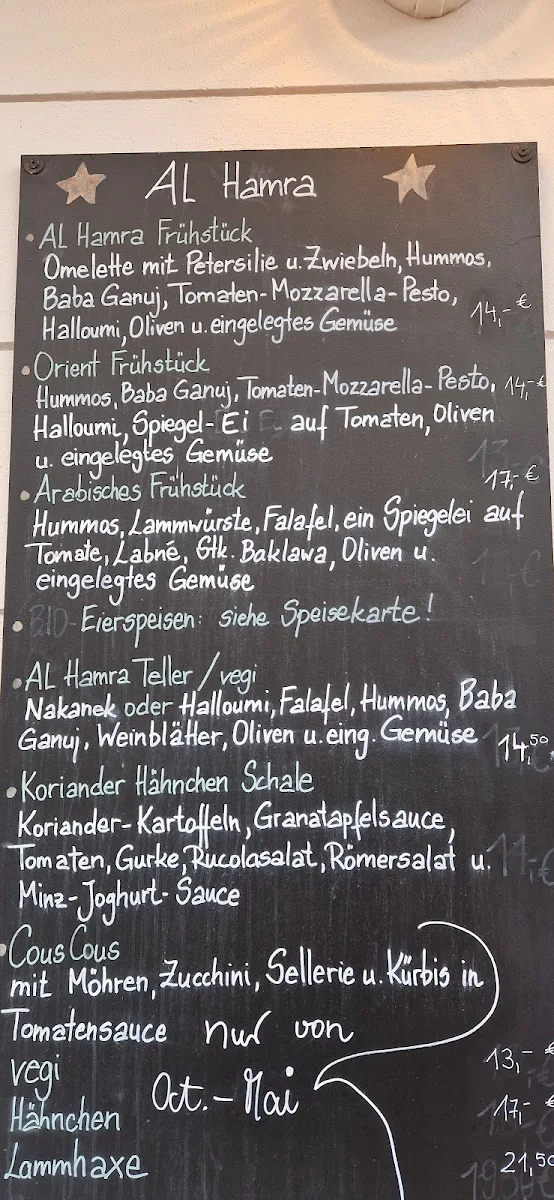 AL Hamra
AL Hamra Frühstück
Omelette mit Petersilie u. Zwiebeln, Hummos,
Baba Ganuj, Tomaten-Mozzarella-Pesto,
Halloumi, Oliven u. eingelegtes Gemüse 14,- €
Orient Frühstück
Hummos, Baba Ganuj, Tomaten-Mozzarella-Pesto, 14,- €
Halloumi, Spiegel-Ei auf Tomaten, Oliven
u. eingelegtes Gemüse
Arabisches Frühstück 17,- €
Hummos, Lammwürste, Falafel, ein Spiegelei auf
Tomate, Labné, Stk. Baklawa, Oliven u.
eingelegtes Gemüse
BIO-Eierspeisen: siehe Speisekarte!
AL Hamra Teller / vegi
Nakanek oder Halloumi, Falafel, Hummos, Baba
Ganuj, Weinblätter, Oliven u. eing. Gemüse 14,50
Koriander Hähnchen Schale
Koriander-Kartoffeln, Granatapfelsauce,
Tomaten, Gurke, Rucolasalat, Römersalat u. 11,- €
Minz-Joghurt-Sauce
CousCous
mit Möhren, Zucchini, Sellerie u. Kürbis in
Tomatensauce nur von
vegi 13,- €
Oct. - Mai
Hähnchen 17,- €
Lammhaxe 21,50